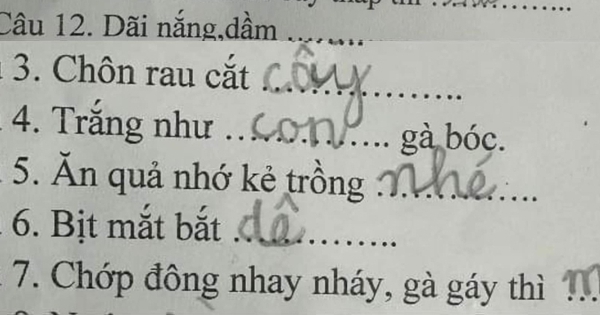 Câu 12. Dãi nắng,dầm ........
3. Chôn rau cắt cây
4. Trắng như con gà bóc.
5. Ăn quả nhớ kẻ trồng nhé
6. Bịt mắt bắt dê
7. Chớp đông nhay nháy, gà gáy thì